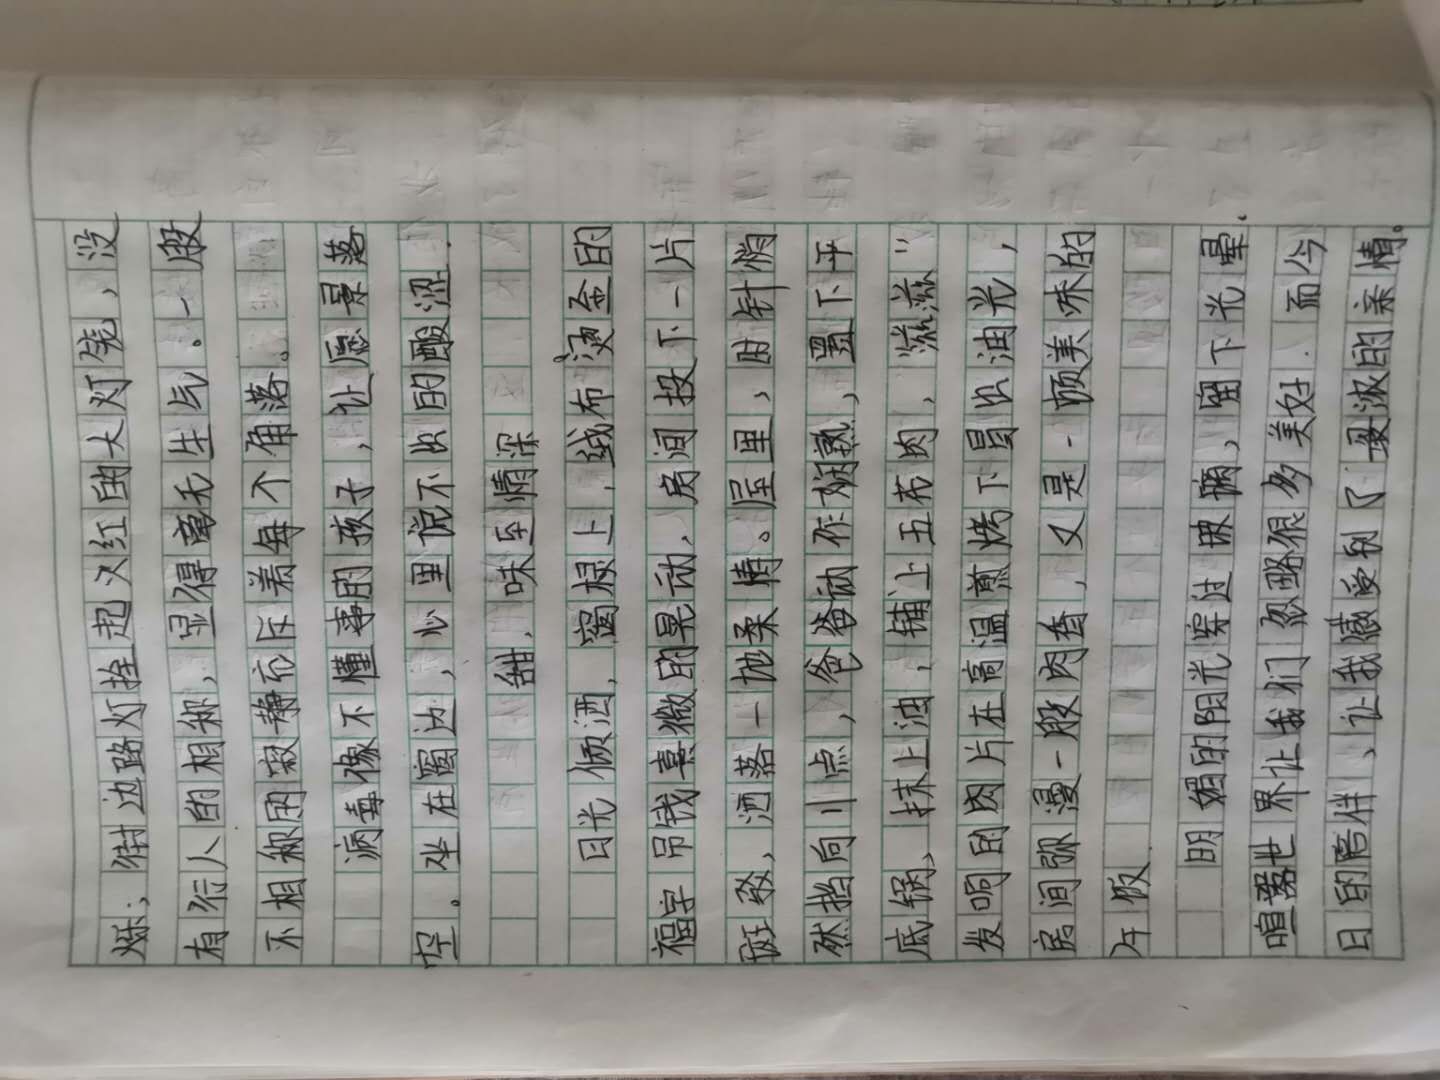 烁；街边路灯拴起火红的大灯笼，没
有行人的相称，显得毫无生气。一股
不相称的寂静充斥着每个角落。
病毒像不懂事的孩子，让愿景落
空。坐在窗边，心里说不出的酸涩.
甜，味至情深
日光倾洒，窗棂上，绒布烫金的
福字吊钱熹微的晃动，房间投下一片
斑驳，洒落一地柔情。屋里，时针悄
然挡向11点，爸爸动作娴熟，置下平
底锅，抹上油，铺上五花肉，滋滋"
发响的肉片在高温煎烤下冒出油光，
房间弥漫一般肉香，又是一顿美味的
午饭.
明媚的阳光穿过玻璃，留下光晕.
喧嚣世界让我们忽略很多美好.而今
日的陪伴，让我感受到了最浓的亲情。